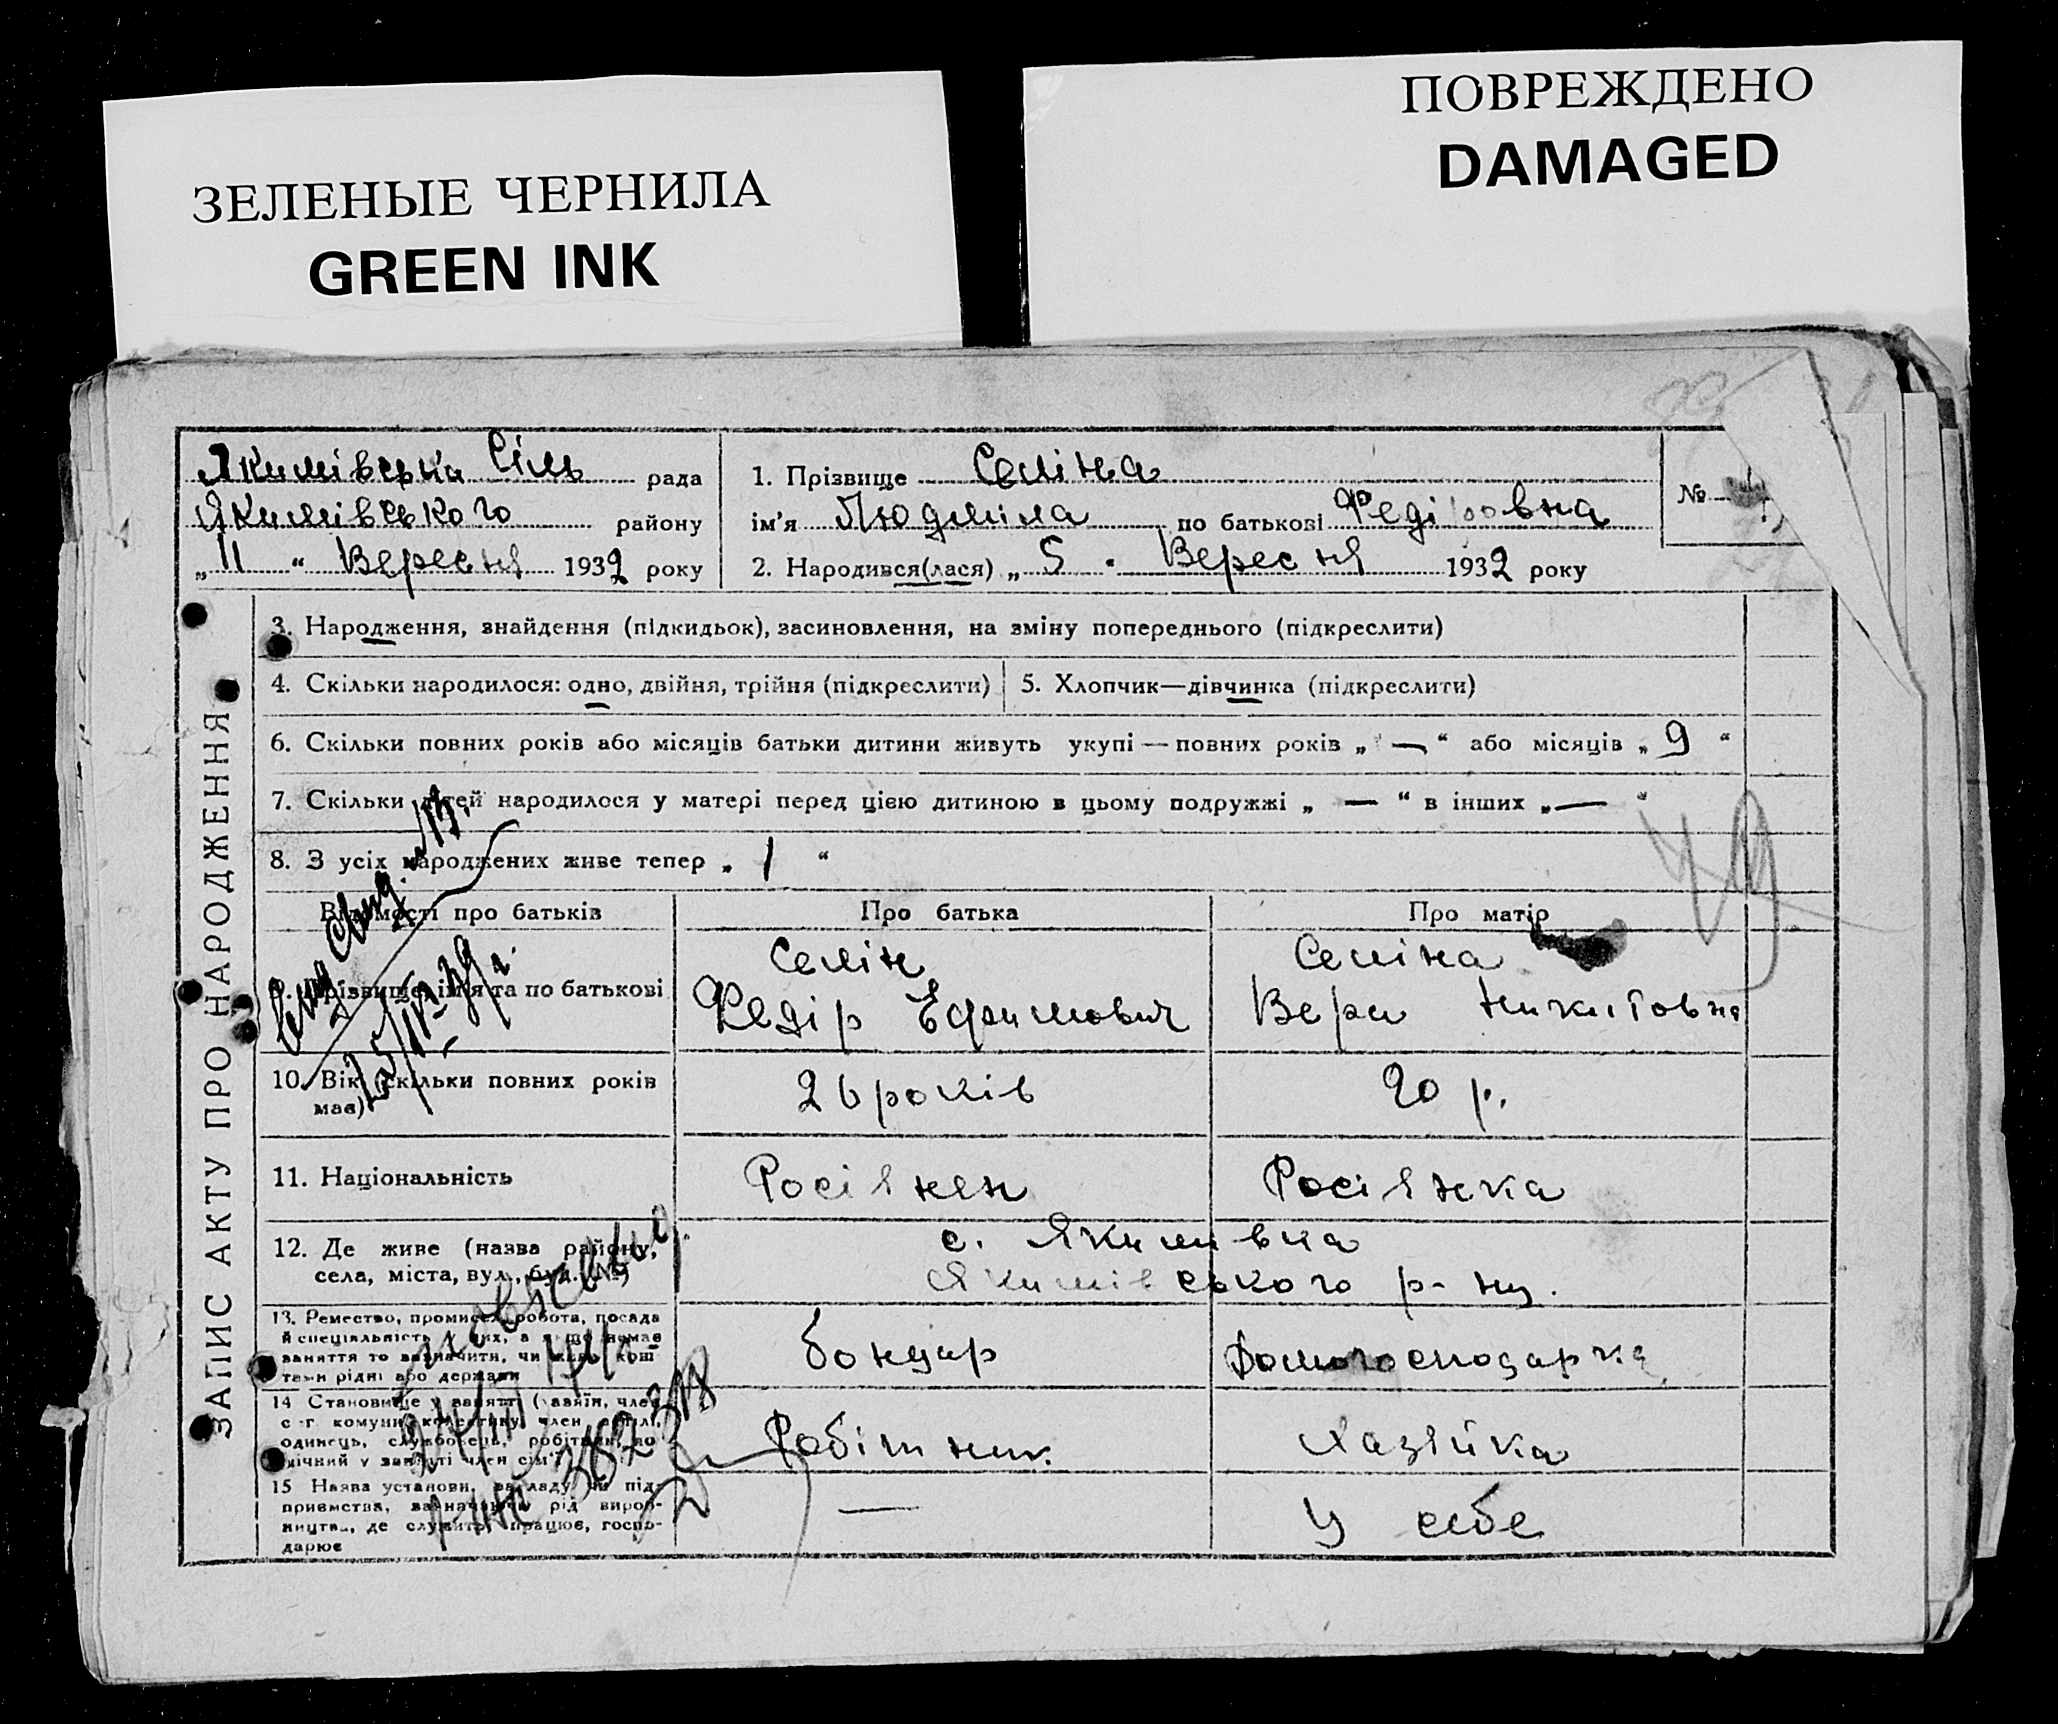 ЗЕЛЕНЫЕ ЧЕРНИЛА
GREEN INK
ПОВРЕЖДЕНО
DAMAGED
Якимівська Сіль рада
Якимівського району
„11“ Вересня 1932 року
1. Прізвище Селіна
ім’я Людміла по батькові Федіровна
2. Народився(лася) „5“ Вересня 1932 року
№
ЗАПИС АКТУ ПРО НАРОДЖЕННЯ
3. Народження, знайдення (підкидьок), засиновлення, на зміну попереднього (підкреслити)
4. Скільки народилося: одно, двійня, трійня (підкреслити)
5. Хлопчик—дівчинка (підкреслити)
6. Скільки повних років або місяців батьки дитини живуть укупі — повних років „ — “ або місяців „ 9 “
7. Скільки дітей народилося у матері перед цією дитиною в цьому подружжі „ — “ в інших „ — “
8. З усіх народжених живе тепер „ 1 “
Відомості про батьків
Про батька
Про матір
9. Прізвище, ім’я та по батькові
Селін
Федір Ефимович
Селіна
Вера Никитовна
10. Вік (скільки повних років
має)
26 років
20 р.
11. Національність
Росіянен
Росіянка
12. Де живе (назва району,
села, міста, вул., буд. №)
с. Якимівка
Якимівського р-ну.
13. Ремество, промисел, робота, посада
й спеціяльність у них, а як що немає
заняття то зазначити, чи жив кош
тами рідні або держави
бондар
Домогосподарка
14 Становище у занятті (хазяїн, член
с-г комуни, колективу, член артілі,
одинець, службовець, робітник, до
Робітник.
Хазяйка
15 Назва установи, закладу чи під-
приємства, зазначаючи рід вироб-
ництва, де служить, працює, госпо-
дарює
—
У себе